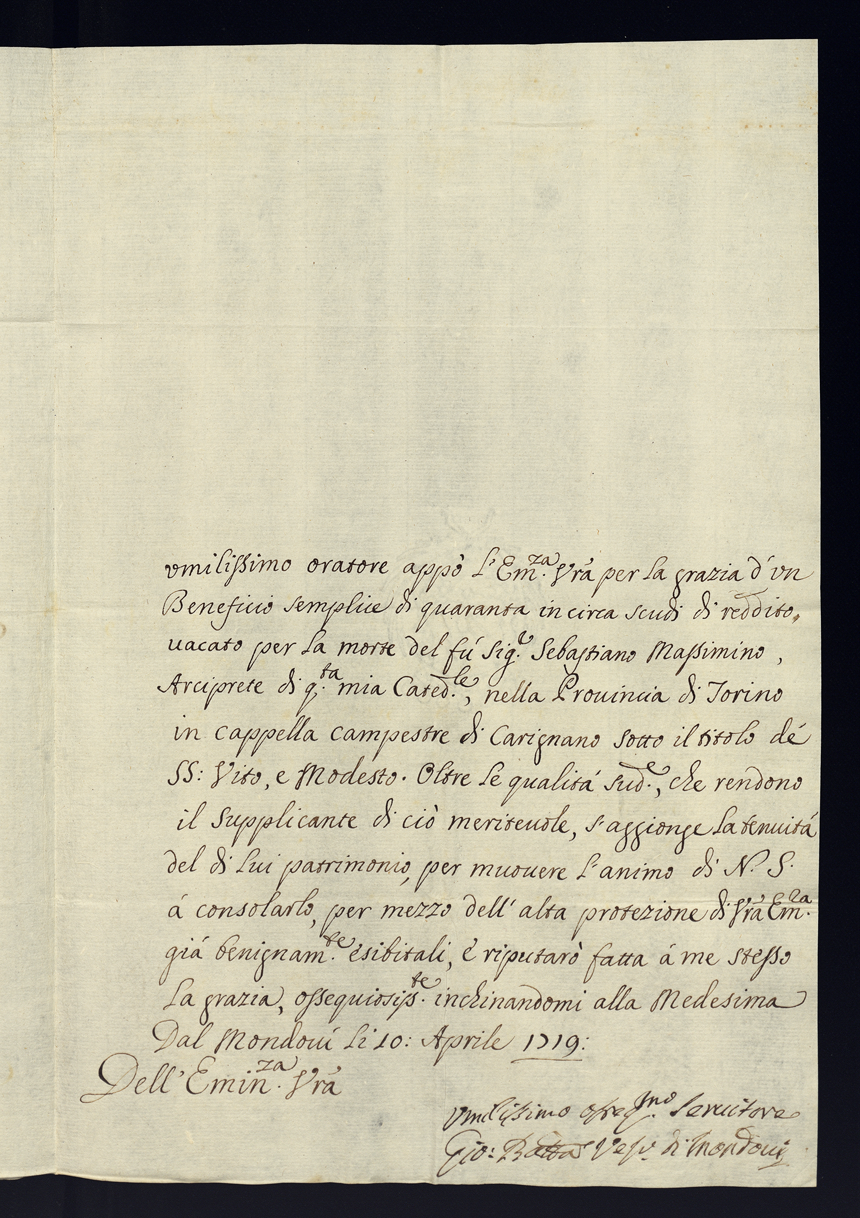 vmilissimo oratore appò L'Em.za Vra per la grazia d'vn
Beneficio semplice di quaranta in circa scudi di reddito,
uacato per la morte del fú Sig.e Sebastiano Massimino,
Arciprete di q.ta mia Cated.le, nella Prouincia di Torino
in cappella campestre di Carignano sotto il titolo dé
SS: Vito, e Modesto. Oltre le qualitá sud.e, che rendono
il supplicante di ciò meriteuole, s'aggionge la tenuitá
del di lui patrimonio, per muouere l'animo di N. S.
á consolarlo, per mezzo dell'alta protezione di Vra Em.za
giá benignam.te esibitali, e riputarò fatta á me stesso
la grazia, ossequiosiss.te inchinandomi alla Medesima
Dal Mondouí li 10: Aprile 1719:
Dell'Emin.za Vra
vmilissimo osseq.mo Seruitore
Gio: Batta Vesc.o di Mondoui